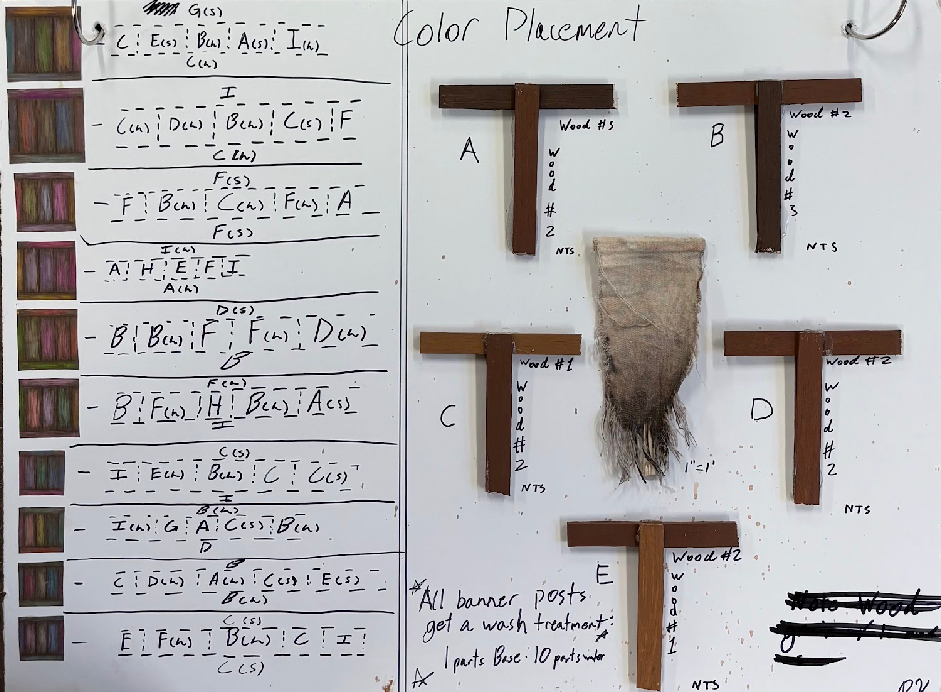 G(s)
C E(s) B(h) A(s) I(h)
C(h)
I
C(h) D(h) B(h) C(s) F
C(h)
F(s)
F B(h) C(h) F(h) A
F(s)
I(h)
A H E F I
A(h)
D(s)
B B(h) F F(h) D(h)
B
F(h)
B F(h) H B(h) A(s)
I
C(s)
I E(h) B(h) C C(s)
I
B(h)
I(h) G A C(s) B(h)
D
B
C D(h) A(h) C(s) E(s)
B(h)
C(s)
E F(h) B(h) C I
C(s)
Color Placement
A
Wood #3
Wood #2
NTS
B
Wood #2
Wood #3
NTS
C
Wood #1
Wood #2
NTS
1"=1'
D
Wood #2
Wood #2
NTS
E
Wood #2
Wood #1
NTS
All banner posts
get a wash treatment:
1 parts Base: 10 parts water